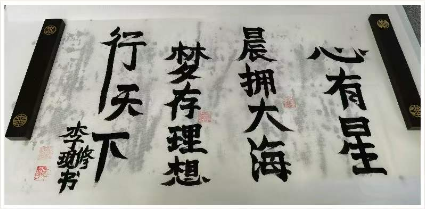 心有星
晨拥大海
梦存理想
行天下
李修书